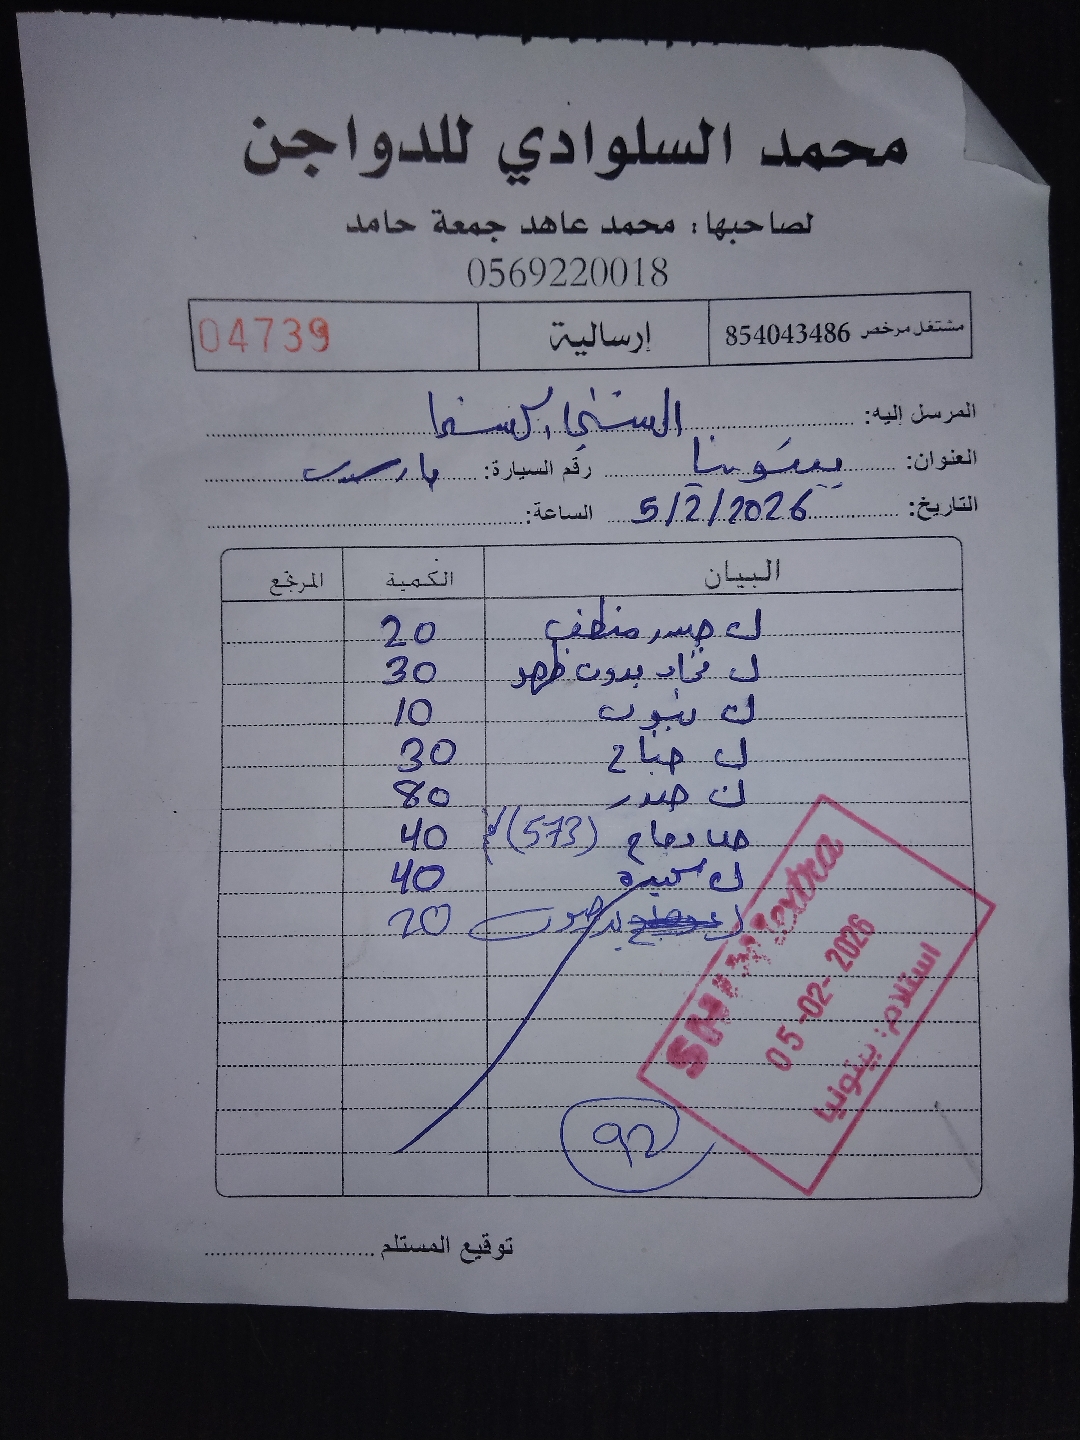 محمد السلوادي للدواجن
لصاحبها: محمد عاهد جمعة حامد
0569220018
مشتغل مرخص 854043486 إرسالية 04739
المرسل إليه: الشني اكسترا
العنوان: بيتونيا رقم السيارة:
التاريخ: 5/2/2026 الساعة:
البيان الكمية المرتجع
ك صدر منظف 20
ك فخاد بدون ظهر 30
ك دبوس 10
ك جناح 30
ك صدر 80
دجاج (573) 40
ك كبدة 40
ك 20
92
Extra
05-02-2026
استلام: بيتونيا
توقيع المستلم